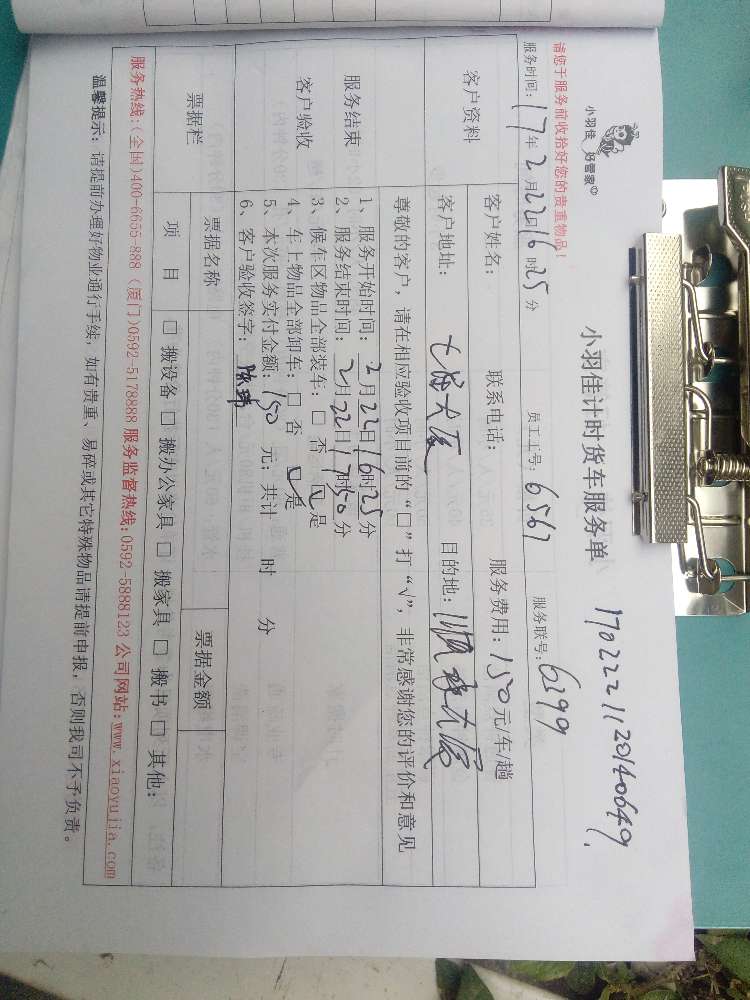 小羽佳 好管家
小羽佳计时货车服务单
1702221120140649
请您于服务前收拾好您的贵重物品！
服务时间：17年2月22日16时25分 员工工号：6567 服务联号：6299
客户资料
客户姓名： 联系电话： 服务费用：150元/车/趟
客户地址： 大厦 目的地： 大厦
尊敬的客户，请在相应验收项目前的“□”打“√”，非常感谢您的评价和意见
服务结束
客户验收
1、服务开始时间：2月22日16时25分
2、服务结束时间：2月22日17时50分
3、候车区物品全部装车：□ 否 ☑ 是
4、车上物品全部卸车：□ 否 ☑ 是
5、本次服务实付金额：150 元；共计 时 分
6、客户验收签字：
票据栏
票据名称 票据金额
项 目 □ 搬设备 □ 搬办公家具 □ 搬家具 □ 搬书 □ 其他：
服务热线:(全国)400-6655-888 (厦门)0592-5178888 服务监督热线:0592-5888123 公司网站:www.xiaoyujia.com
温馨提示：请提前办理好物业通行手续，如有贵重、易碎或其它特殊物品请提前申报，否则我司不予负责。